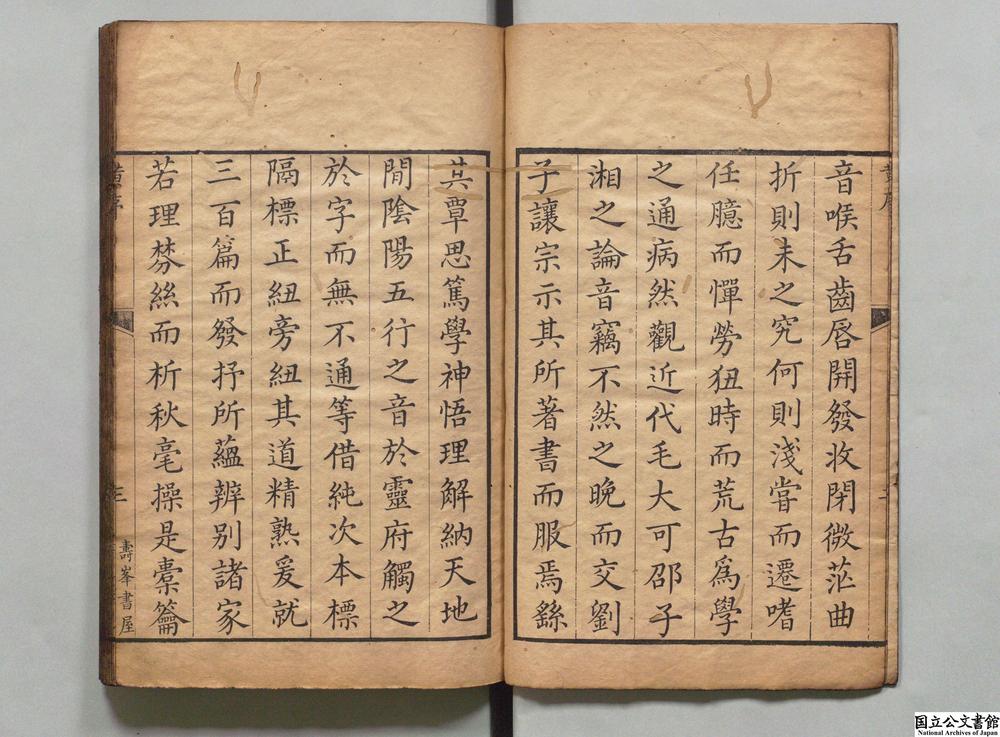 音喉舌齒唇開發收閉微茫曲
折則未之究何則淺嘗而遷嗜
任臆而憚勞狃時而荒古爲學
之通病然觀近代毛大可邵子
湘之論音竊不然之晩而交劉
子讓宗示其所著書而服焉繇
其覃思篤學神悟理解納天地
間陰陽五行之音於靈府觸之
於字而無不通等借純次本標
隔標正紐旁紐其道精熟爰就
三百篇而發抒所蘊辨别諸家
若理棼絲而析秋毫操是橐籥
三
壽峯書屋
国立公文書館
National Archives of Japan